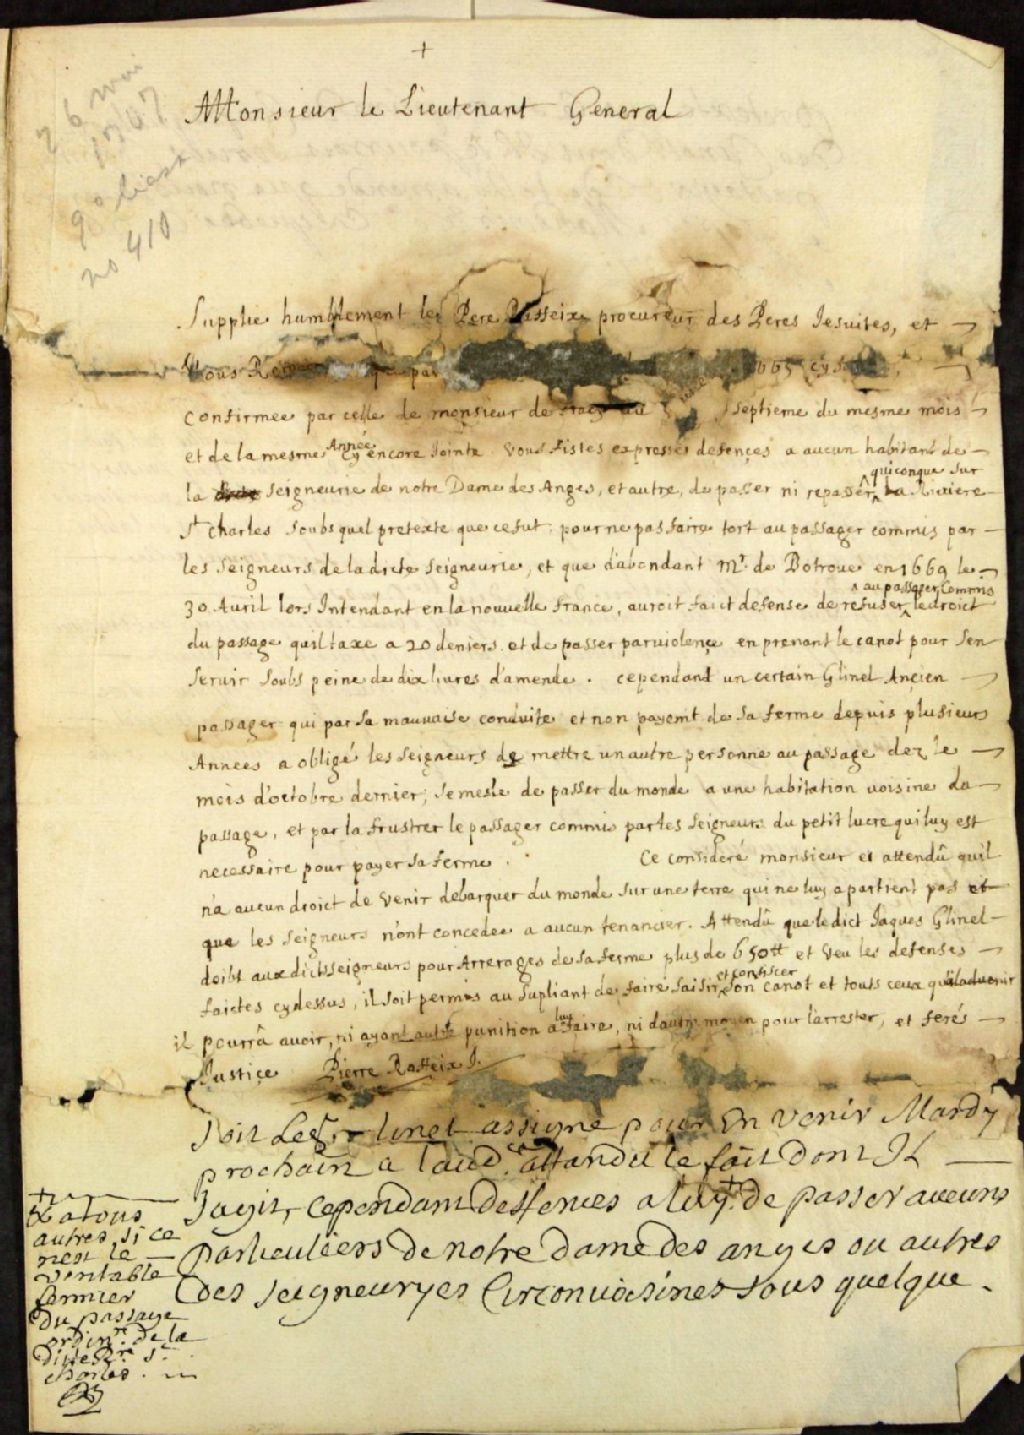 +
26 mai
1707
9e liasse
no 410
Monsieur le Lieutenant General
Supplie humblement le Pere Rasseix procureur des Peres Iesuites, et
Vous 665 cy
confirmee par celle de monsieur de Tracy du septieme du mesme mois
et de la mesme Année cy encore Jointe Vous fistes expresses defences a aucun habitant de
quiconque sur
la dicte seigneurie de notre Dame des Anges, et autre, de passer ni repasser la Riviere
St Charles soubs quel pretexte que ce fut, pour ne pas faire tort au passager commis par
les seigneurs de la dicte seigneurie, et que d'abondant Mr de Botroue en 1669 le
au passager Commis
30 Avril lors Intendant en la nouvelle france, auroit faict defense de refuser le droict
du passage quil taxe a 20 deniers et de passer par violence en prenant le canot pour sen
servir soubs peine de dix livres d'amende. cependant un certain Glinel Ancien
passager qui par sa mauvaise conduite et non payemt de sa ferme depuis plusieurs
Annees a obligé les seigneurs de mettre un autre personne au passage dez le
mois d'octobre dernier, se mesle de passer du monde a une habitation voisine du
passage, et par la frustrer le passager commis par les seigneurs du petit lucre qui luy est
necessaire pour payer sa ferme. Ce consideré monsieur et attendû quil
n'a aucun droict de venir debarquer du monde sur une terre qui ne luy apartient pas et
que les seigneurs n'ont concedee a aucun tenancier. Attendû que le dict Jaques Glinel
doibt aux dicts seigneurs pour Arrerages de sa ferme plus de 650tt et veu les defenses
et confiscer
faictes cydessus, il soit permis au supliant de faire saisir son canot et touts ceux qu'il
il pourrâ avoir, ni ayant autre punition a luy faire, ni dautre moyen pour l'arrester, et ferés
Justice Pierre Raffeix J.
Soit Led. Glinel assigné pour En venir Mardy
prochain a laud.ce attandu le fait dont Il
Sagit, cependant deffences a luy + de passer aucuns
particuliers de notre dame des anges ou autres
des seigneuryes Circonvoisines sous quelque
+
& a tous
autres, si ce
nest le
veritable
fermier
du passage
ordinre de la
ditte Rre St
charles.